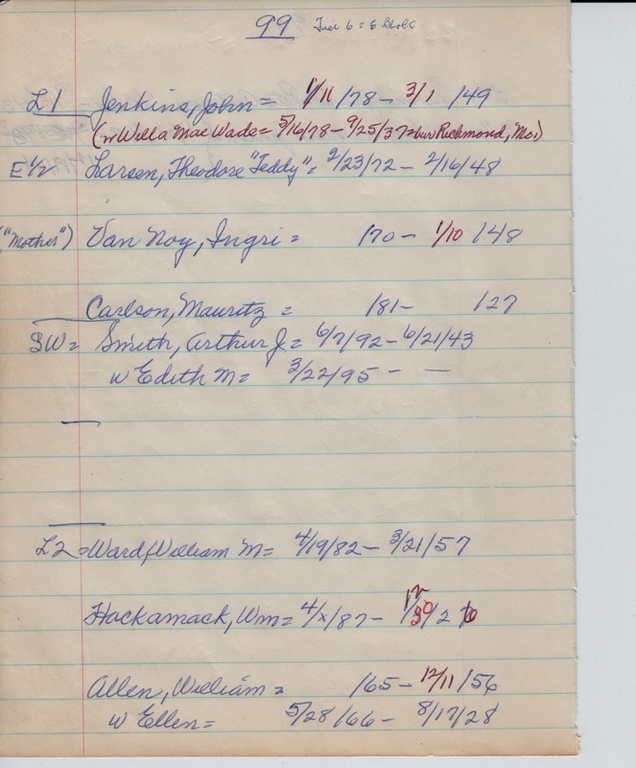 99 Tier 6 = 6 Block
L1 Jenkins, John = 1/11/78 - 3/1/49
(w Willa Mae Wade = 5/16/78 - 9/25/37 = bur Richmond, Mo.)
E 1/2 Larsen, Theodore "Teddy" = 2/23/72 - 2/16/48
("Mother") Van Noy, Ingri = /70 - 1/10/48
Carlson, Mauritz = /81 - /27
SW = Smith, Arthur J. = 6/7/92 - 6/21/43
w Edith M = 3/22/95 - —
L2 = Ward, William M = 4/19/82 - 3/21/57
Hockamack, Wm = 4/x/87 - 12/30/26
Allen, William = /65 - 12/11/56
w Ellen = 5/28/66 - 8/17/28